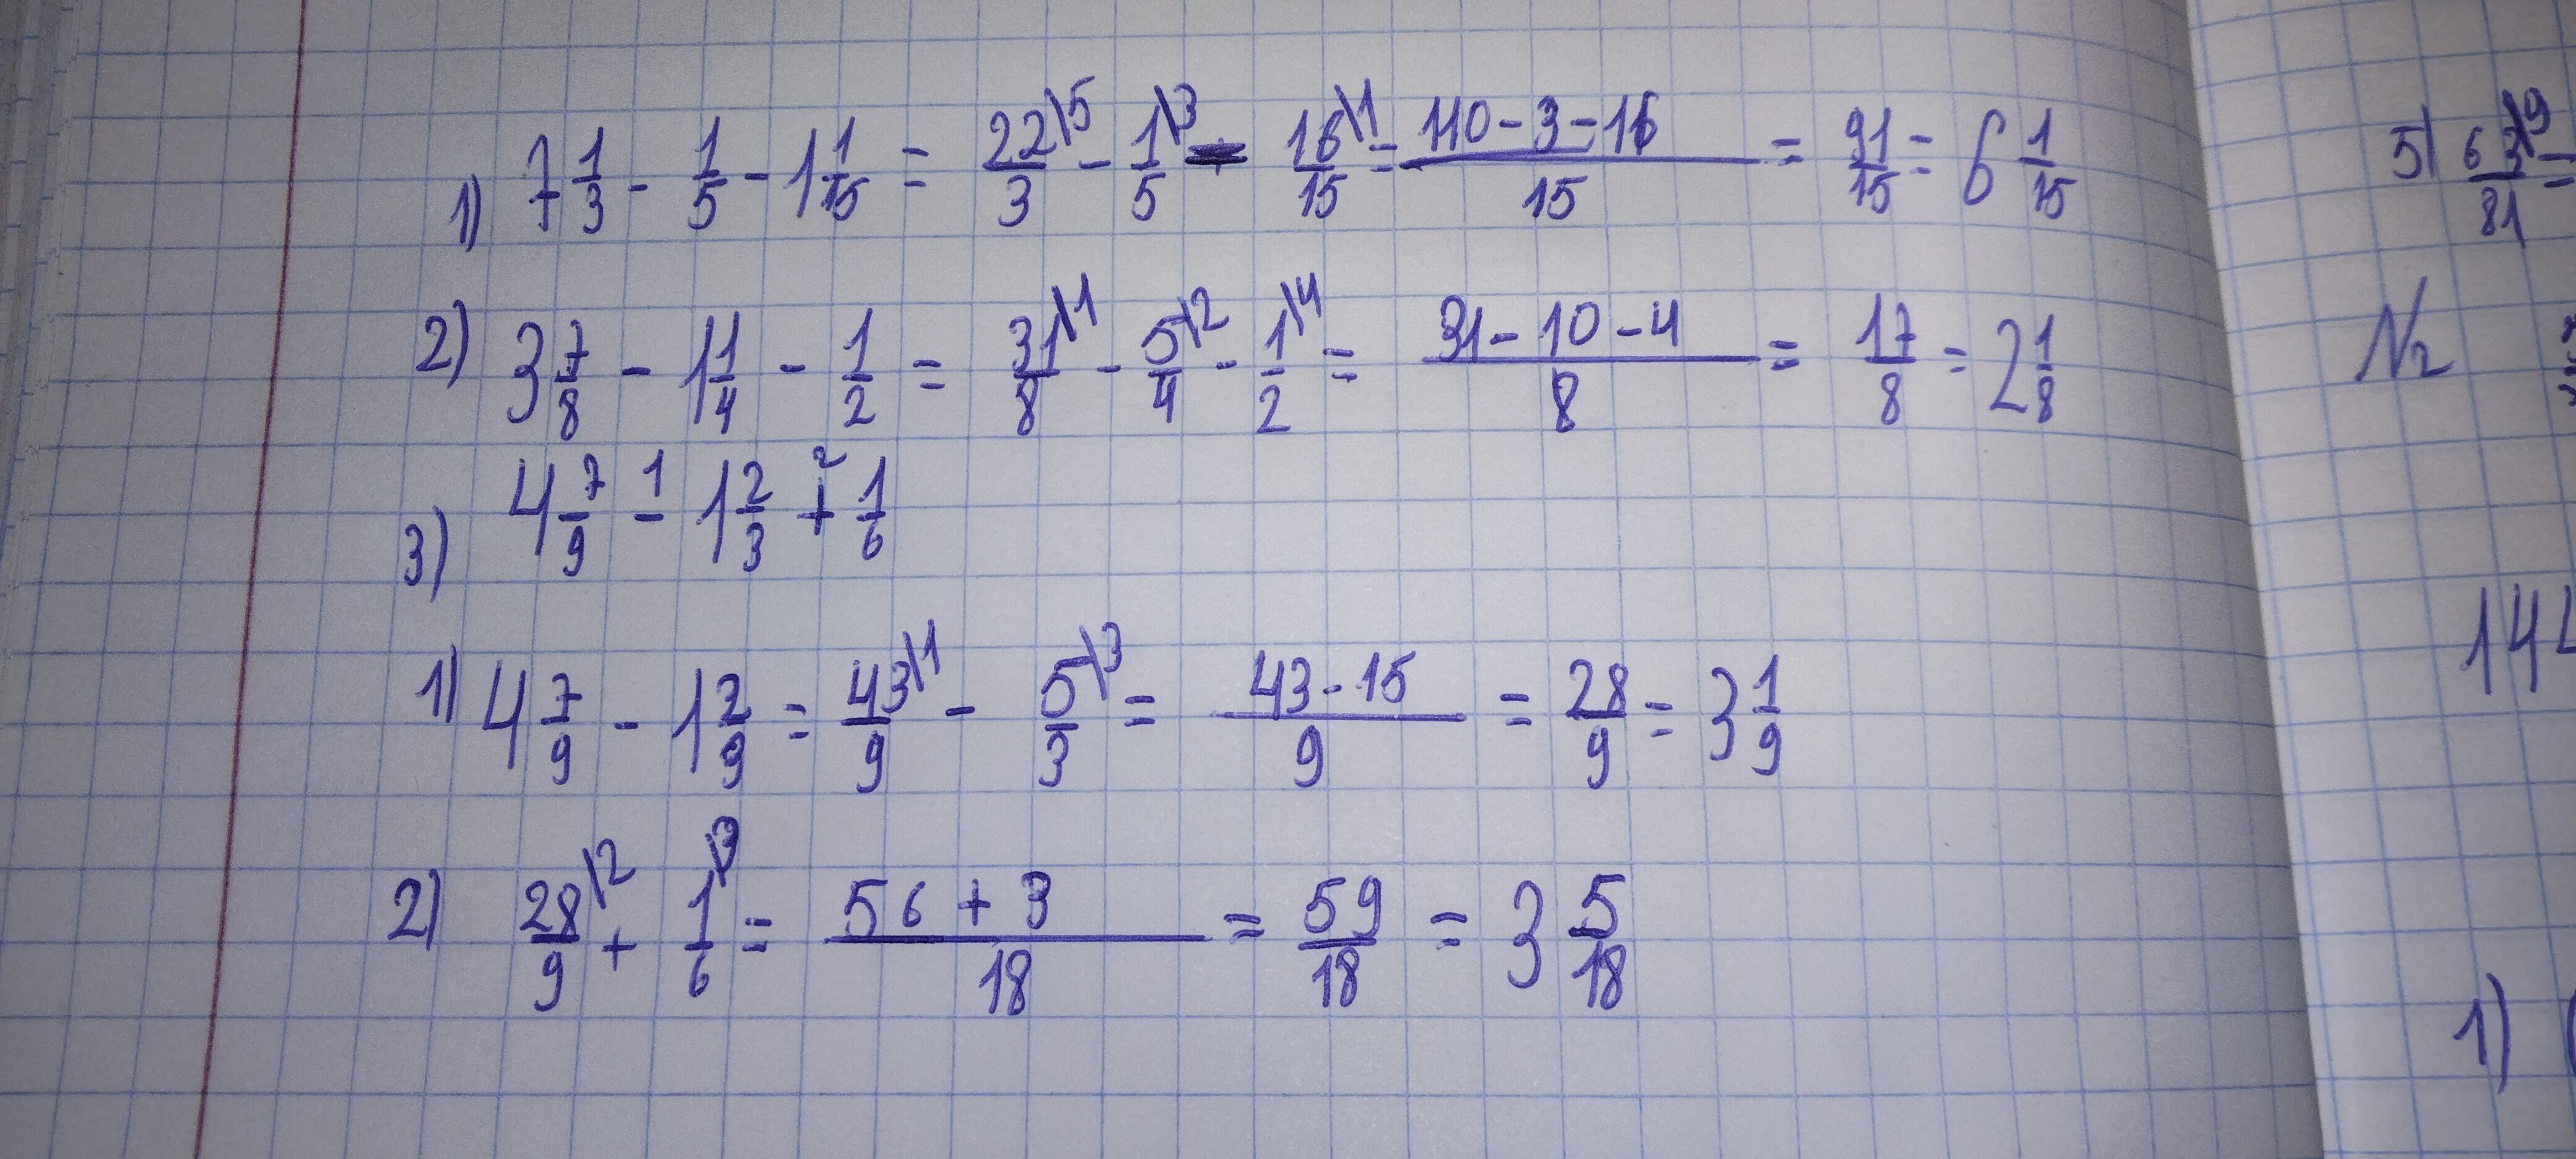 1) 7 1/3 - 1/5 - 1 1/15 = 22\5/3 - 1\3/5 - 16\1/15 = 110-3-16/15 = 91/15 = 6 1/15
2) 3 7/8 - 1 1/4 - 1/2 = 31\1/8 - 5\2/4 - 1\4/2 = 31-10-4/8 = 17/8 = 2 1/8
1 2
3) 4 7/9 - 1 2/3 + 1/6
1) 4 7/9 - 1 2/9 = 43\1/9 - 5\3/3 = 43-15/9 = 28/9 = 3 1/9
2) 28\2/9 + 1\3/6 = 56+3/18 = 59/18 = 3 5/18
5) 63\9/81 =
N2
144
1) (